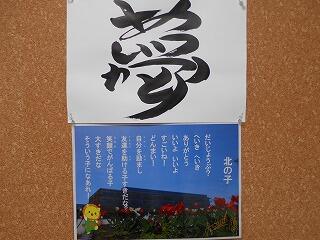 北の子
だいじょうぶ？
へいき へいき
ありがとう
いいよ いいよ
すごいね！
どんまい！
自分を励まし
友達を助ける子すきだな
笑顔でがんばる子
大すきだな
そういう子になあれ！